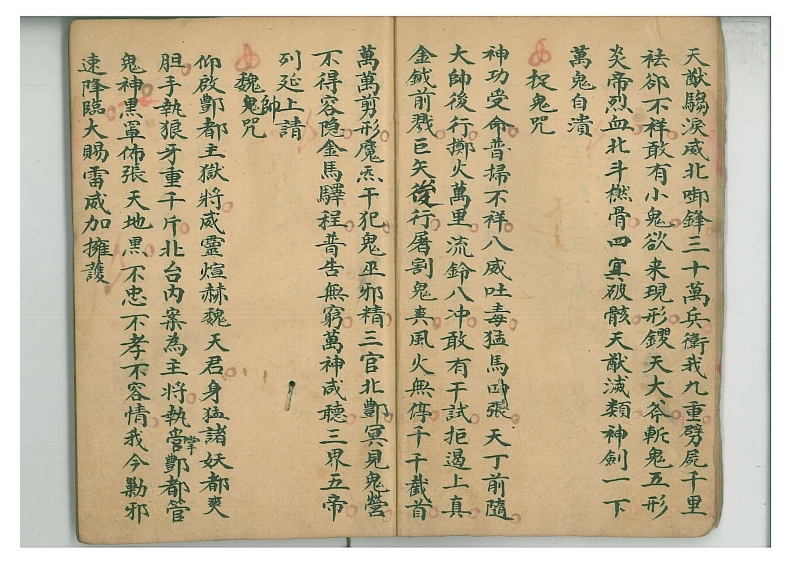 天猷騶淚威北啣鋒三十萬兵衛我九重劈屍千里
祛卻不祥敢有小鬼欲来現形钁天大斧斬鬼五形
炎帝烈血北斗燃骨四冥破骸天猷滅類神劍一下
萬鬼自潰
捉鬼咒
神功受命普掃不祥八威吐毒猛馬四張天丁前隨
大帥後行擲火萬里流鈴八冲敢有干試拒遏上真
金鉞前戮巨矢後行屠割鬼爽風火無停千千截首
萬萬剪形魔炁干犯鬼巫邪精三官北酆冥見鬼營
不得容隐金馬驛程普告無窮萬神咸聽三界五帝
列延上請
魏帥鬼咒
仰啟酆都主獄將威靈煊赫魏天君身猛諸妖都爽
胆手執狼牙重千斤北台內案為主將執掌酆都管
鬼神黑罩佈張天地黑不忠不孝不容情我今勦邪
速降臨大賜雷威加擁護